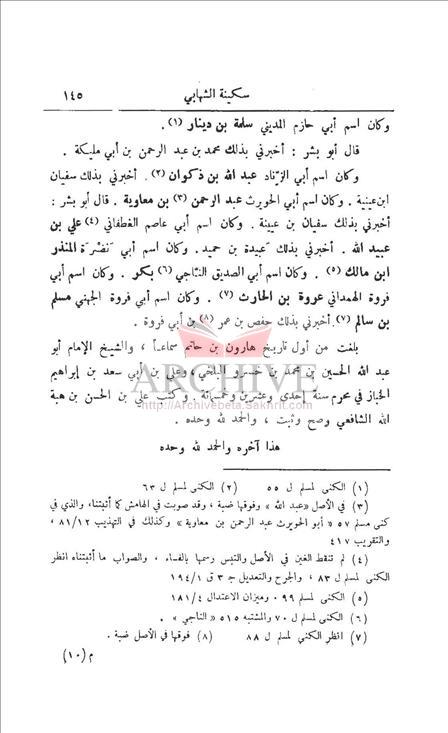 سكينة الشهابي ١٤٥
وكان اسم أبي حازم المديني سلمة بن دينار (١) .
قال أبو بشر : أخبرني بذلك محمد بن عبد الرحمن بن أبي مليكة .
وكان اسم أبي الزّناد عبد الله بن ذكوان (٢) . أخبرني بذلك سفيان
ابن عيينة . وكان اسم أبي الحويرث عبد الرحمن (٣) بن معاوية . قال أبو بشر :
أخبرني بذلك سفيان بن عيينة . وكان اسم أبي عاصم الغطفاني (٤) علي بن
عبيد الله . أخبرني بذلك عَبيدة بن حميد . وكان اسم أبي نَضْرَة المنذر
ابن مالك (٥) . وكان اسم أبي الصديق النّاجي (٦) بكر . وكان اسم أبي
فروة الهمداني عروة بن الحارث (٧) . وكان اسم أبي فروة الجهني مسلم
بن سالم (٧) . أخبرني بذلك حفص بن عمر (٨) بن أبي فروة .
بلغت من أول تاريخ هارون بن حاتم سماعاً ، والشيخ الإمام أبو
عبد الله الحسين بن محمد بن خسرو البلخي ، وعلي بن أبي سعد بن إبراهيم
الخباز في محرم سنة إحدى وعشرين وخمسمائة . وكتب علي بن الحسن بن هبة
الله الشافعي وصح وثبت ، والحمد لله وحده .
هذا آخره والحمد لله وحده
ARCHIVE
http://Archivebeta.Sakhrit.com
(١) الكنى لمسلم ل ٥٥ (٢) الكنى لمسلم ل ٦٣
(٣) في الأصل «عبد الله» وفوقها ضبة ، وقد صوبت في الهامش كما أثبتناه، والذي في
كنى مسلم ٥٧ « أبو الحويرث عبد الرحمن بن معاوية » وكذلك في التهذيب ٨١/١٢ ،
والتقريب ٤١٧
(٤) لم تنقط الغين في الأصل والتبس رسمها بالفاء ، والصواب ما أثبتناه انظر
الكنى لمسلم ل ٨٣ ، والجرح والتعديل ج ٣ ق ١٩٤/١
(٥) الكنى لمسلم ٩٩ . وميزان الاعتدال ١٨١/٤
(٦) الكنى لمسلم ل ٧٠ والمشتبه ٥١٥ « الناجي » .
(٧) انظر الكنى لمسلم ل ٨٨ (٨) فوقها في الأصل ضبة .
م (١٠)